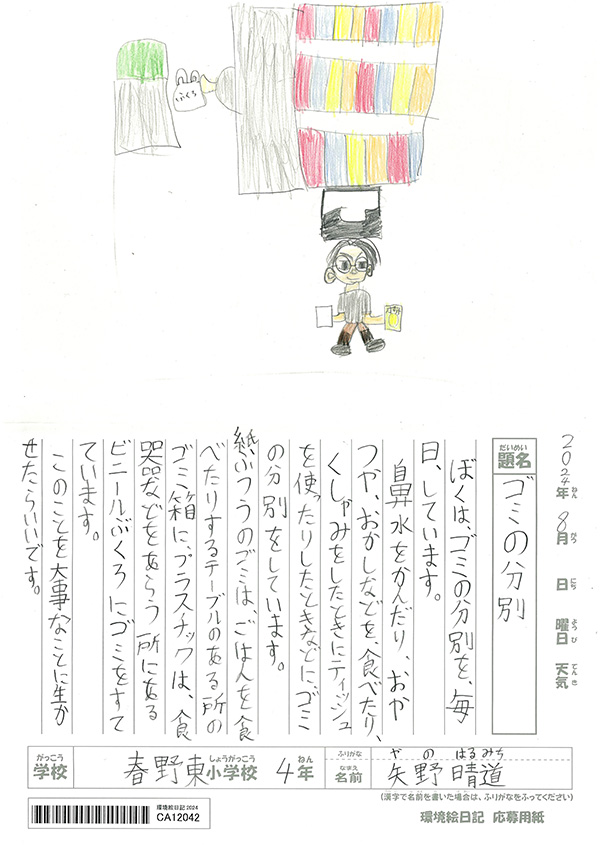 ぶくろ
2024年 8月 日 曜日 天気
ねん がつ にち ようび てんき
だいめい
題名
ゴミの分別
ぼくは、ゴミの分別を、毎
日、しています。
鼻水をかんだり、おか
つや、おかしなどを、食べたり、
くしゃみをしたときにティッシュ
を使ったりしたときなどに、ゴミ
の分別をしています。
紙、ふつうのゴミは、ごは人を食
べたりするテーブルのある所の
ゴミ箱に、プラスチックは、食
器などをあらう所にある
ビニールぶくろにゴミをすて
ています。
このことを大事なことに生か
せたらいいです。
がっこう
学校
春野東小学校 4年
しょうがっこう ねん
ふりがな
やの はるみち
なまえ
名前
矢野 晴道
(漢字で名前を書いた場合は、ふりがなをふってください)
環境絵日記2024
CA12042
環境絵日記 応募用紙